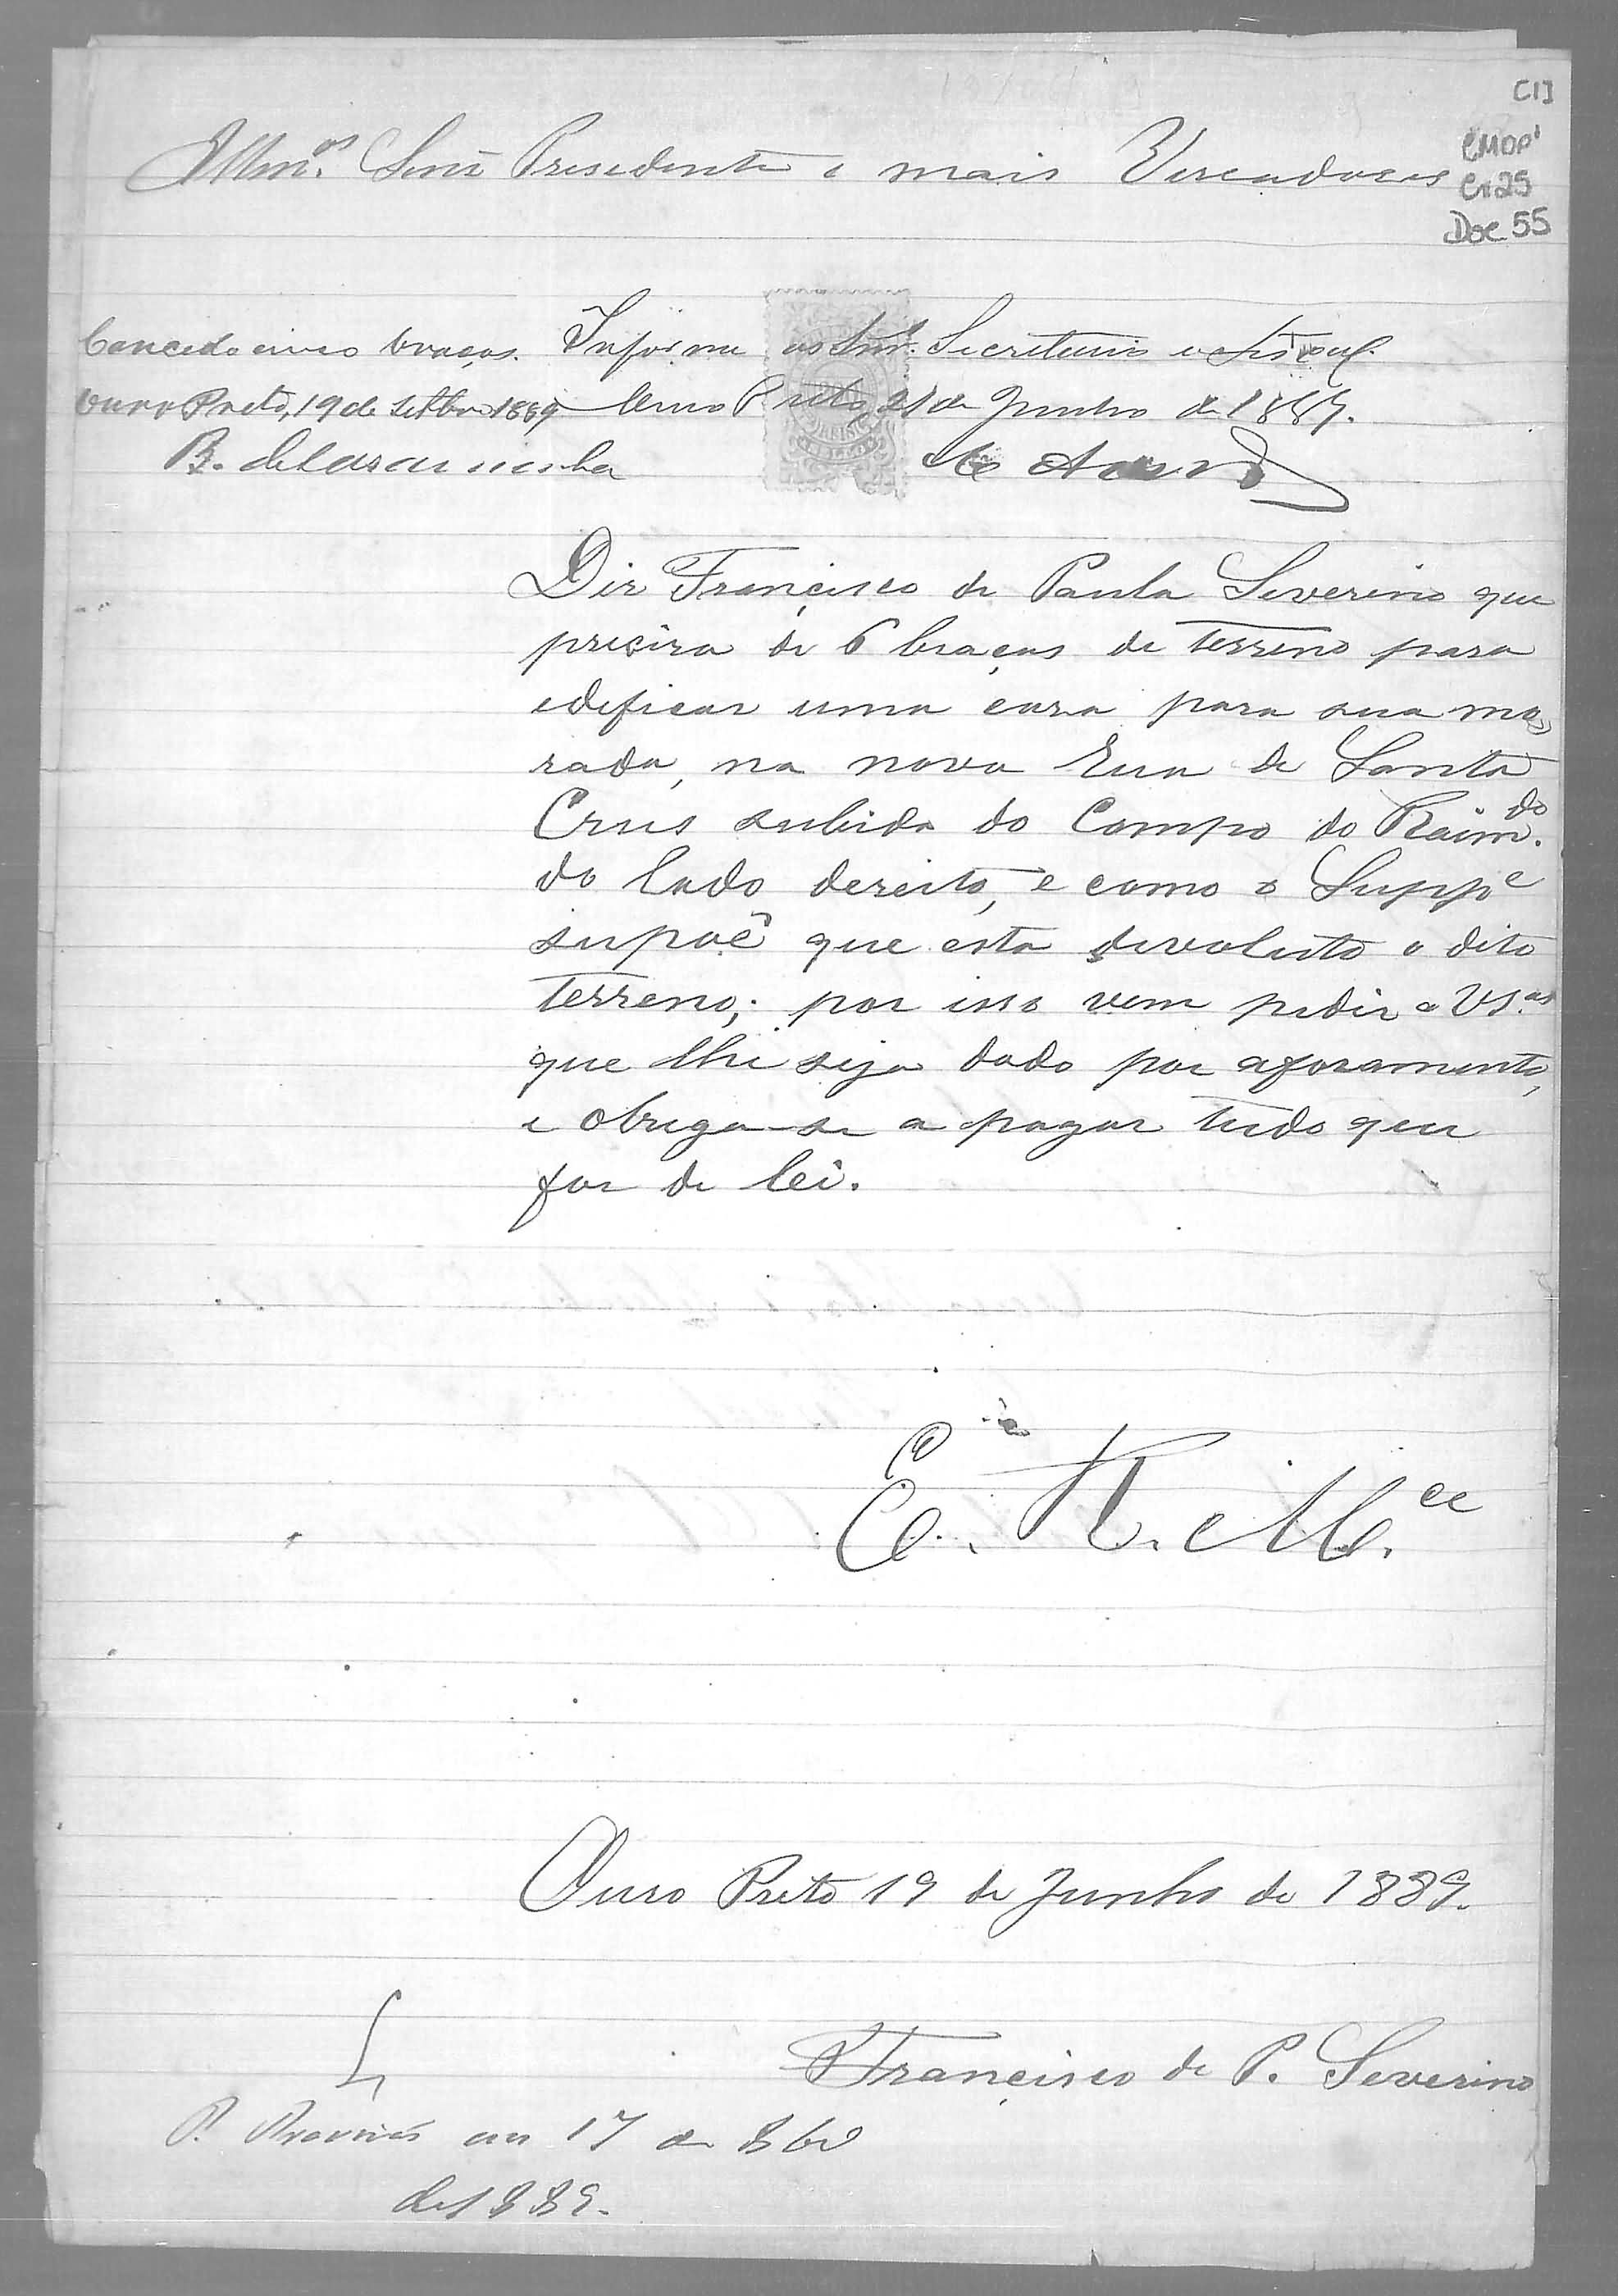 [1]
CMOP
Cx 25
Doc 55
Illmos. Senr Presedente e mais Vereadores
Concedo cinco braças.
Ouro Preto, 19 de Setbro 1889
Informe os Snrs. Secretario e Fiscal.
Ouro Preto, 21 de Junho de 1889.
Diz Francisco de Paula Severino que
precisa de 6 braças de terreno para
edeficar uma casa para sua mo
rada, na nova Rua de Santa
Crus subida do Campo do Raimdo.
do lado dereito, e como o Suppe
supoê que esta devoluto o dito
terreno; por isso vem pedir a VSas
que lhe seja dado por aforamento,
e obrega-se a pagar tudo que
for de lei.
E. R. Mce
Ouro Preto 19 de Junho de 1889.
Francisco de P. Severino
P. em 17 de
de 1889.